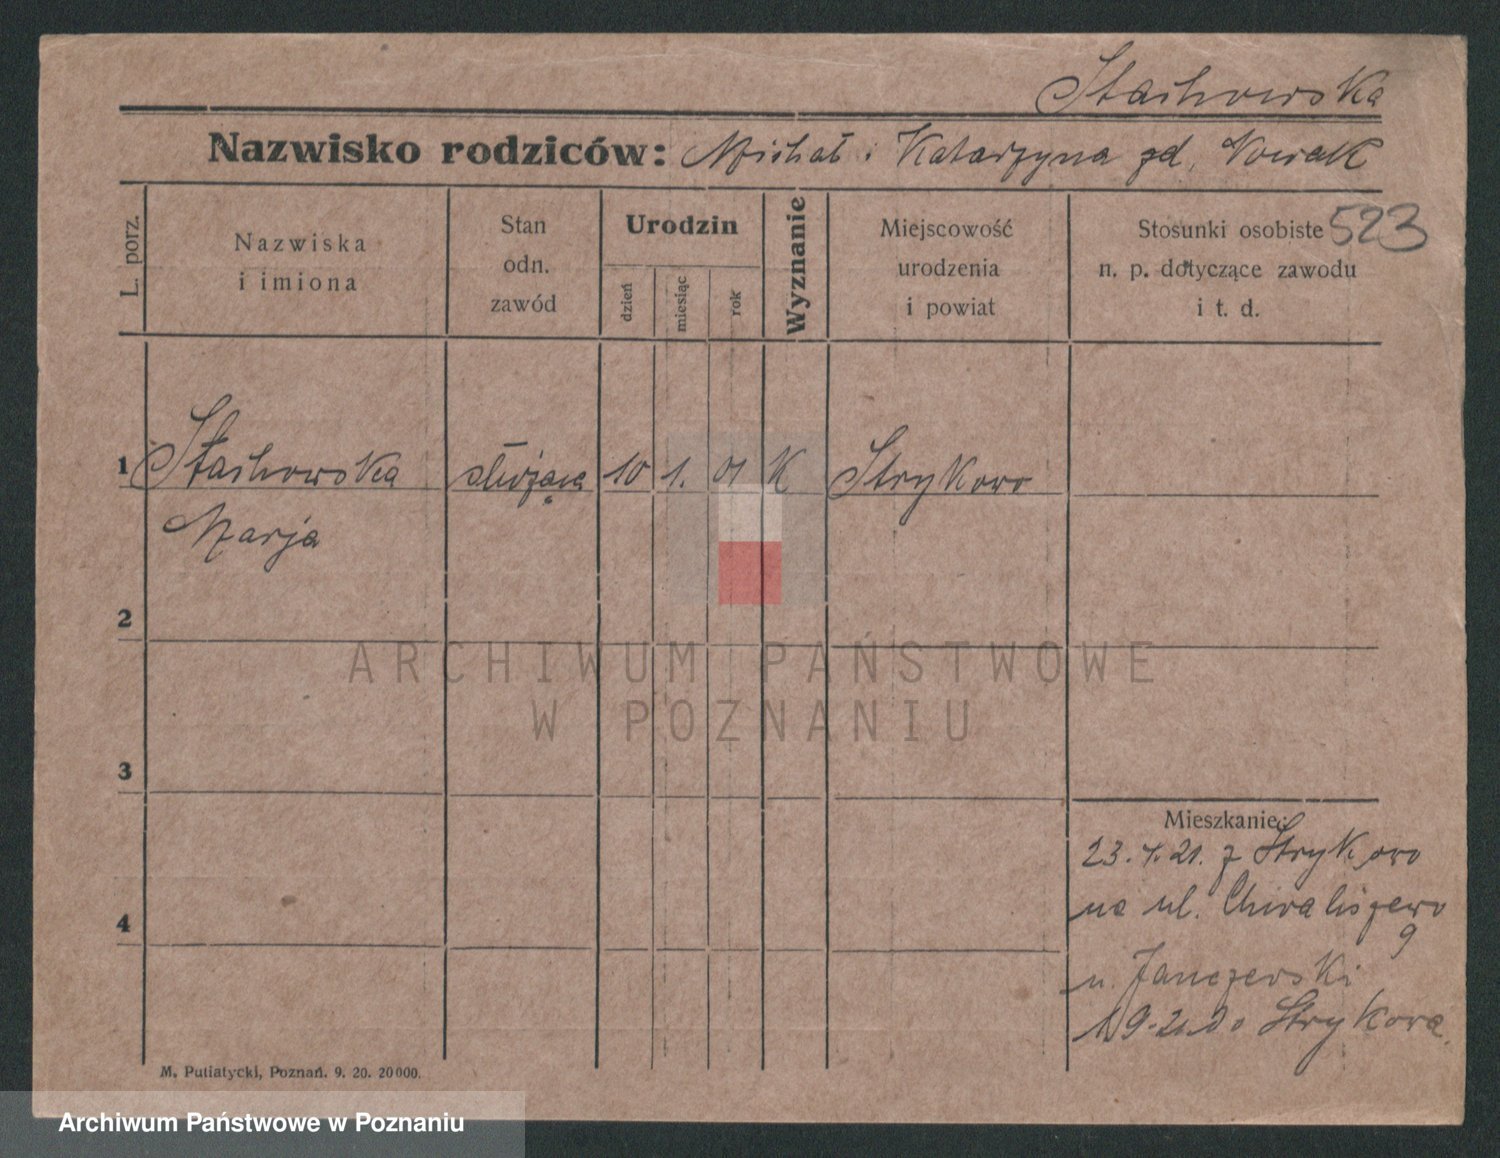 Stachowska
Nazwisko rodziców: Michał i Katarzyna zd. Nowak
523
L. porz.
Nazwiska
i imiona
Stan
odn.
zawód
Urodzin
dzień
miesiąc
rok
Wyznanie
Miejscowość
urodzenia
i powiat
Stosunki osobiste
n. p. dotyczące zawodu
i t. d.
1 Stachowska służąca 10 1. 01 K Strykowo
Marja
2
3
4
Mieszkanie:
23. 4. 21. z Strykowo
na ul. Chwaliszewo
9
u. Janczerski
1 9. 21. do Strykowa.
M. Putiatycki, Poznań. 9. 20. 20000.
ARCHIWUM PAŃSTWOWE
W POZNANIU
Archiwum Państwowe w Poznaniu